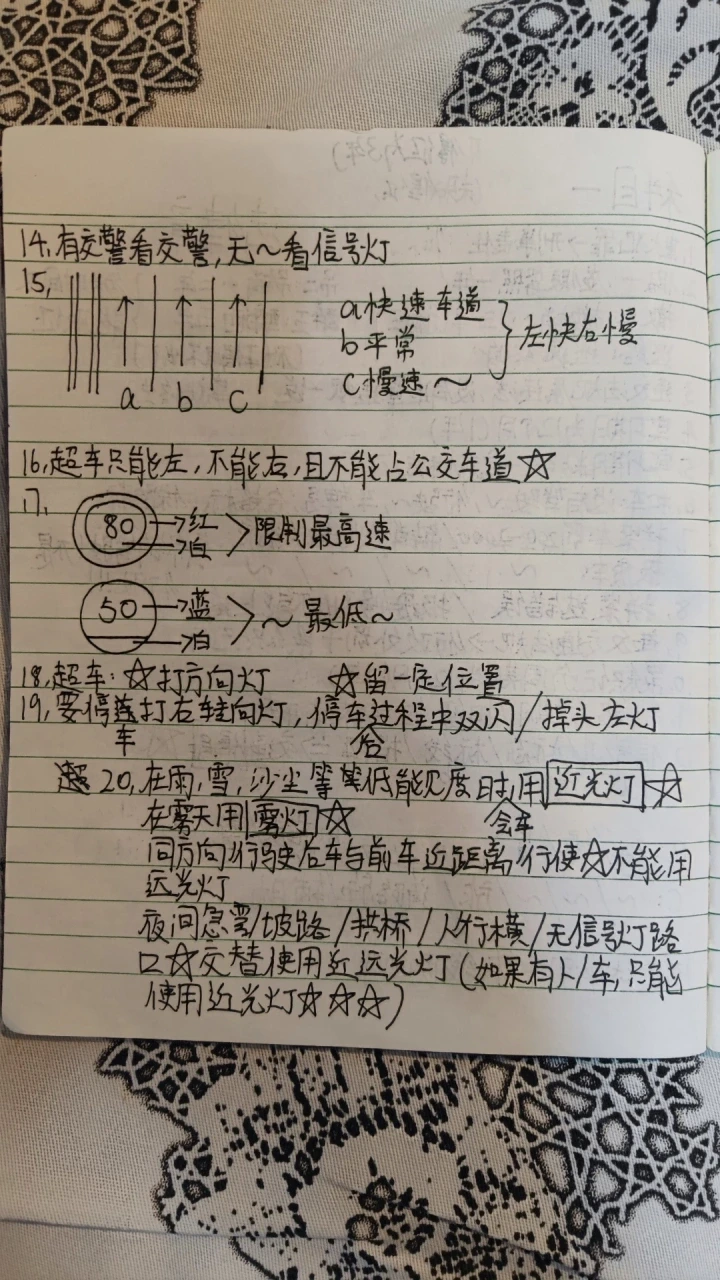 14,有交警看交警,无~看信号灯
15,
a快速车道
b平常
c慢速~
左快右慢
a b c
16,超车只能左,不能右,且不能占公交车道☆
17,
80 →红
→白
限制最高速
50 →蓝
→白
~最低~
18,超车:☆打方向灯 ☆留一定位置
19,要停打右转向灯,停车过程中双闪/掉头左灯
车
20,在雨,雪,沙尘等等低能见度时,用近光灯☆
会车
在雾天用雾灯☆
同方向行驶后车与前车近距离行使☆不能用
远光灯
夜间急弯/坡路/拱桥/人行横/无信号灯路
口☆交替使用近远光灯(如果有人/车,只能
使用近光灯☆☆☆)